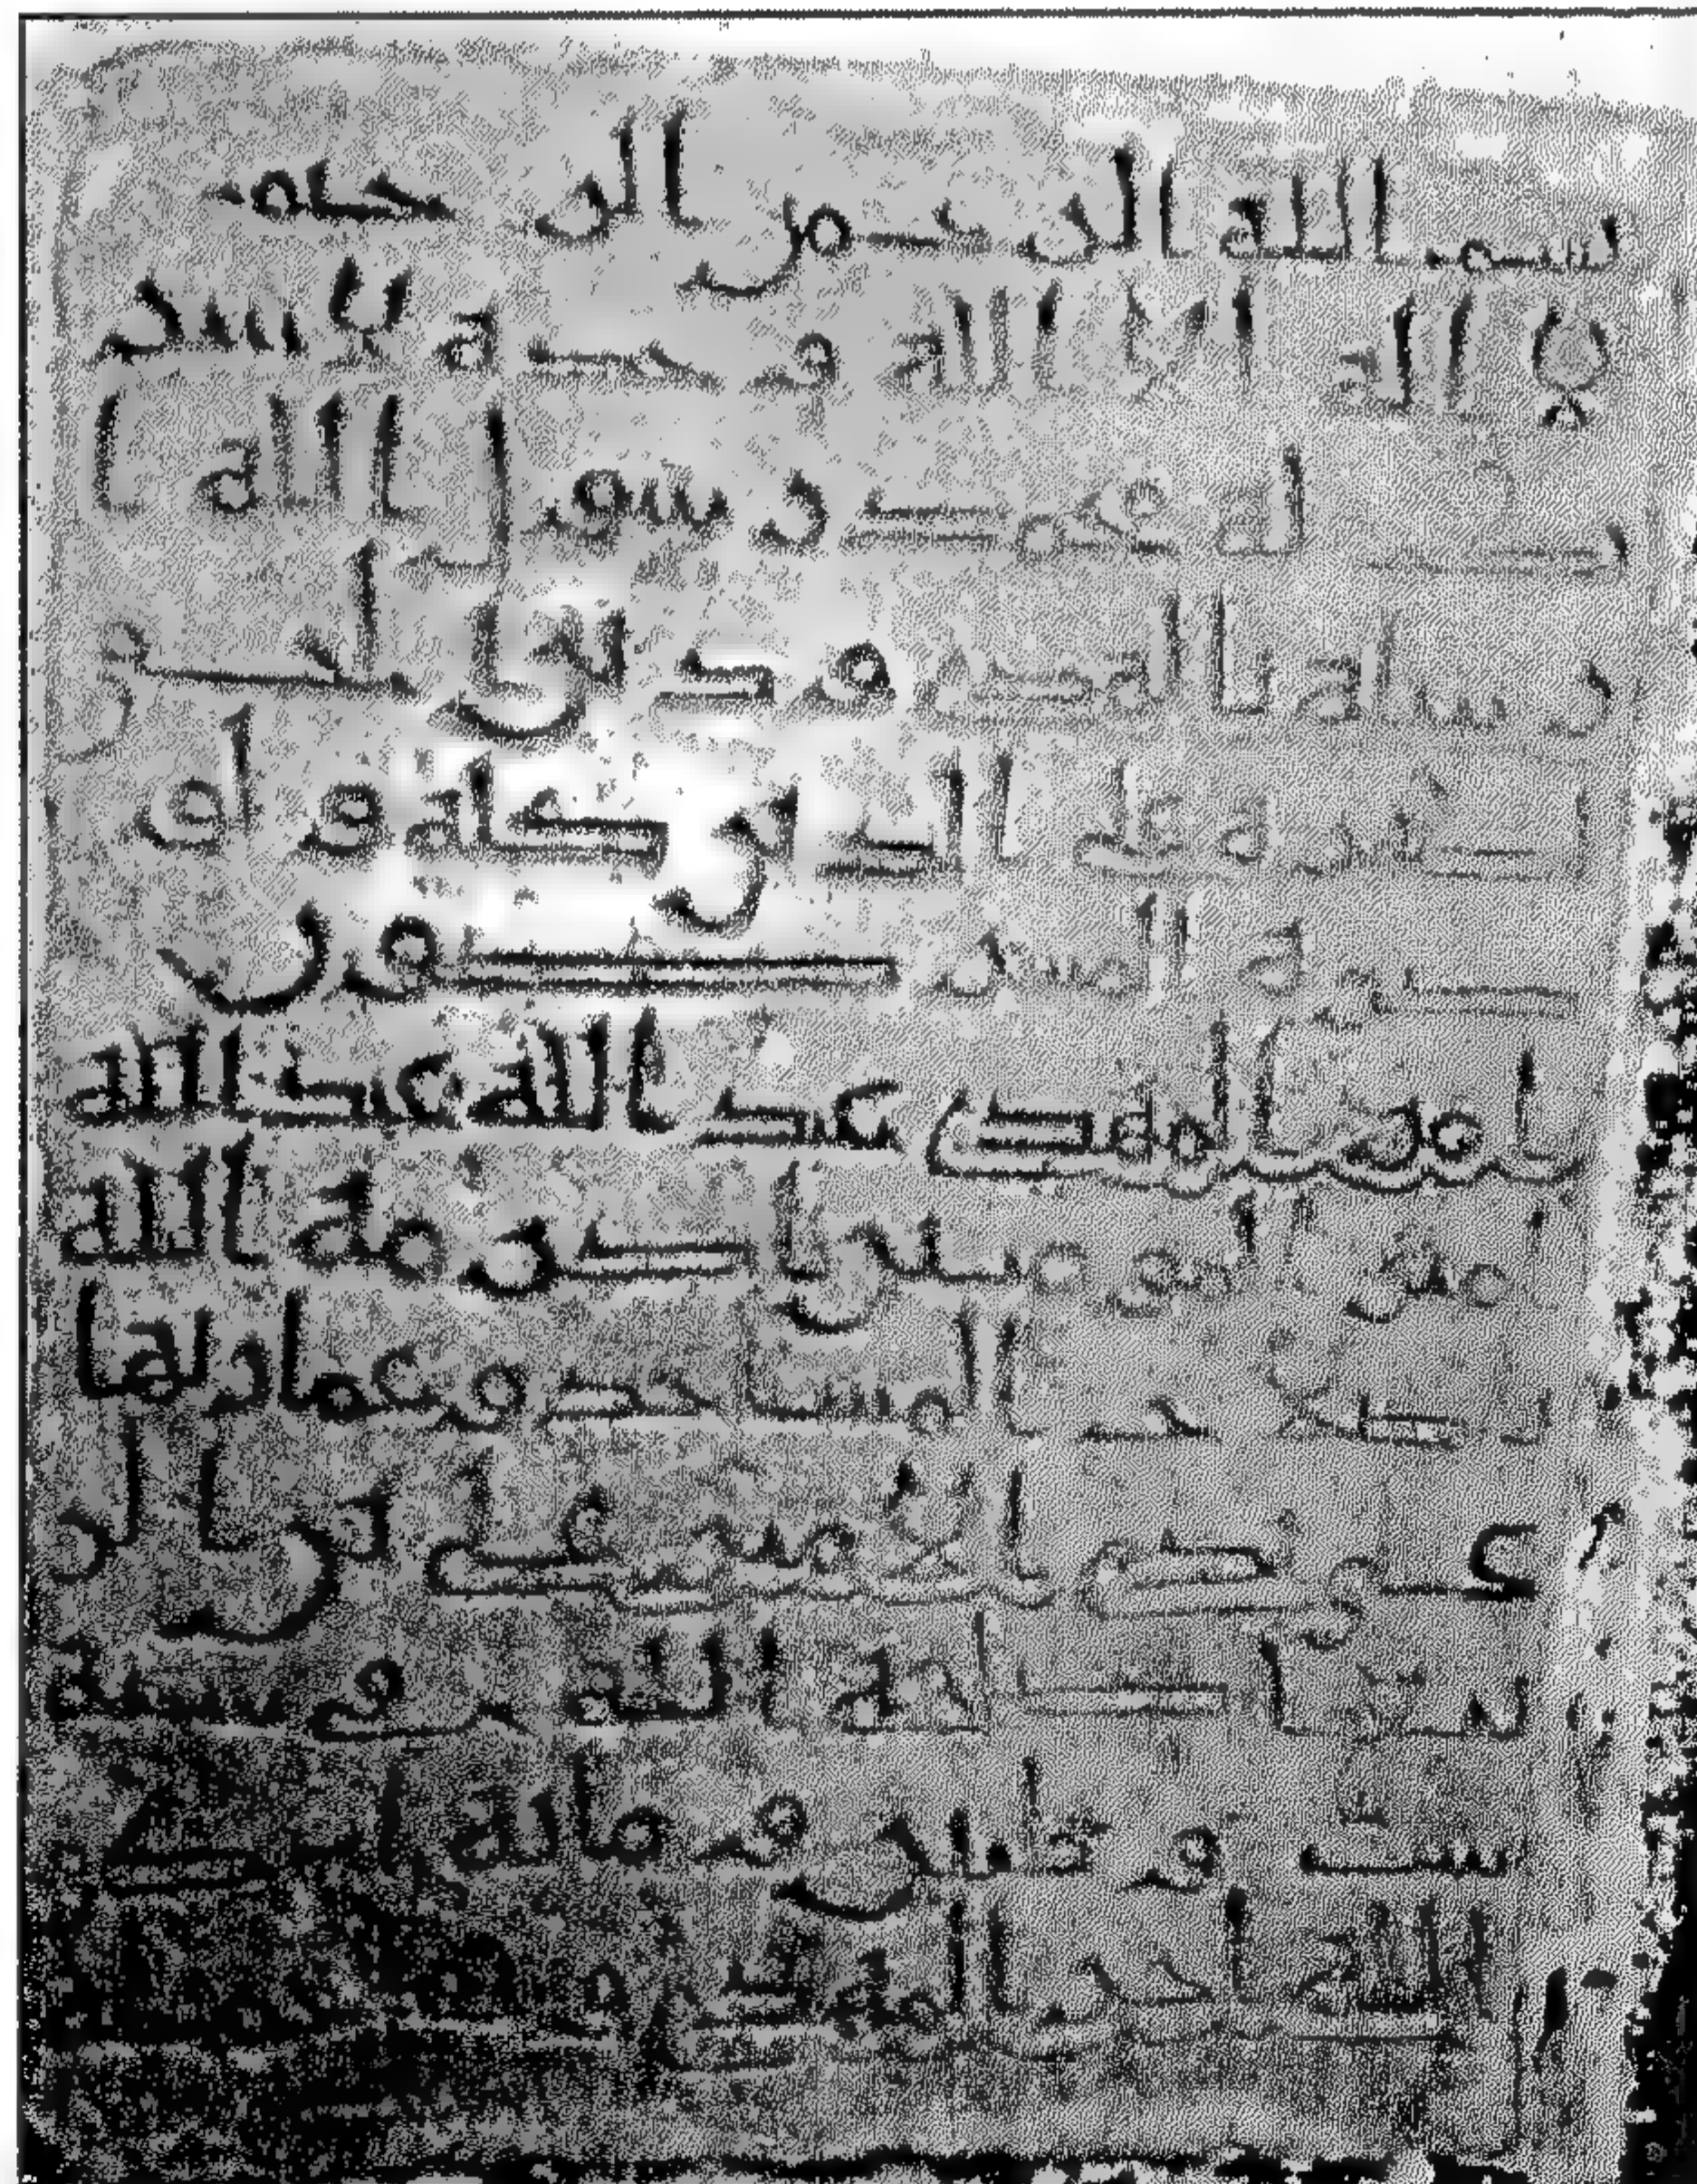 بسم الله الرحمن الرحيم
لا اله الا الله وحده لا شر
يك له محمد رسول الله ا
رسله بالهدى ودين الحق
ليظهره على الدين كله ولو
كره المشركون
امر المهدي عبد الله عبد الله
امير المومنين اكرمه الله
باصلح المسجد وعمارتها
على يدي الامير علي بن الر
بيع اصلحه الله في سنة
ست وثلثين ومائة اعظم
الله اجر المهدي